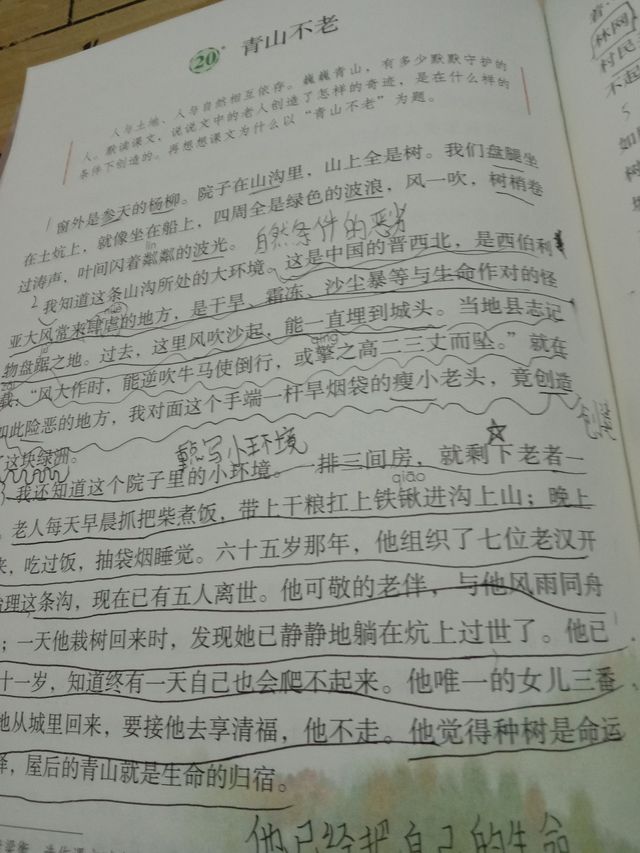 20* 青山不老
人与土地、人与自然相互依存。巍巍青山，有多少默默守护的
人。默读课文，说说文中的老人创造了怎样的奇迹，是在什么样的
条件下创造的。再想想课文为什么以“青山不老”为题。
窗外是参天的杨柳。院子在山沟里，山上全是树。我们盘腿坐
在土炕上，就像坐在船上，四周全是绿色的波浪，风一吹，树梢卷
lín
过涛声，叶间闪着粼粼的波光。 自然条件的恶劣
2 我知道这条山沟所处的大环境。这是中国的晋西北，是西伯利
亚大风常来肆虐的地方，是干旱、霜冻、沙尘暴等与生命作对的怪
物盘踞之地。过去，这里风吹沙起，能一直埋到城头。当地县志记
qíng
载：“风大作时，能逆吹牛马使倒行，或擎之高二三丈而坠。”就在
如此险恶的地方，我对面这个手端一杆旱烟袋的瘦小老头，竟创造
了这块绿洲。
重点写小环境
我还知道这个院子里的小环境。一排三间房，就剩下老者一
qiāo
老人每天早晨抓把柴煮饭，带上干粮扛上铁锹进沟上山；晚上
来，吃过饭，抽袋烟睡觉。六十五岁那年，他组织了七位老汉开
治理这条沟，现在已有五人离世。他可敬的老伴，与他风雨同舟
；一天他栽树回来时，发现她已静静地躺在炕上过世了。他已
十一岁，知道终有一天自己也会爬不起来。他唯一的女儿三番
地从城里回来，要接他去享清福，他不走。他觉得种树是命运
择，屋后的青山就是生命的归宿。
他已经把自己的生命
林网
村民
不起
如
树